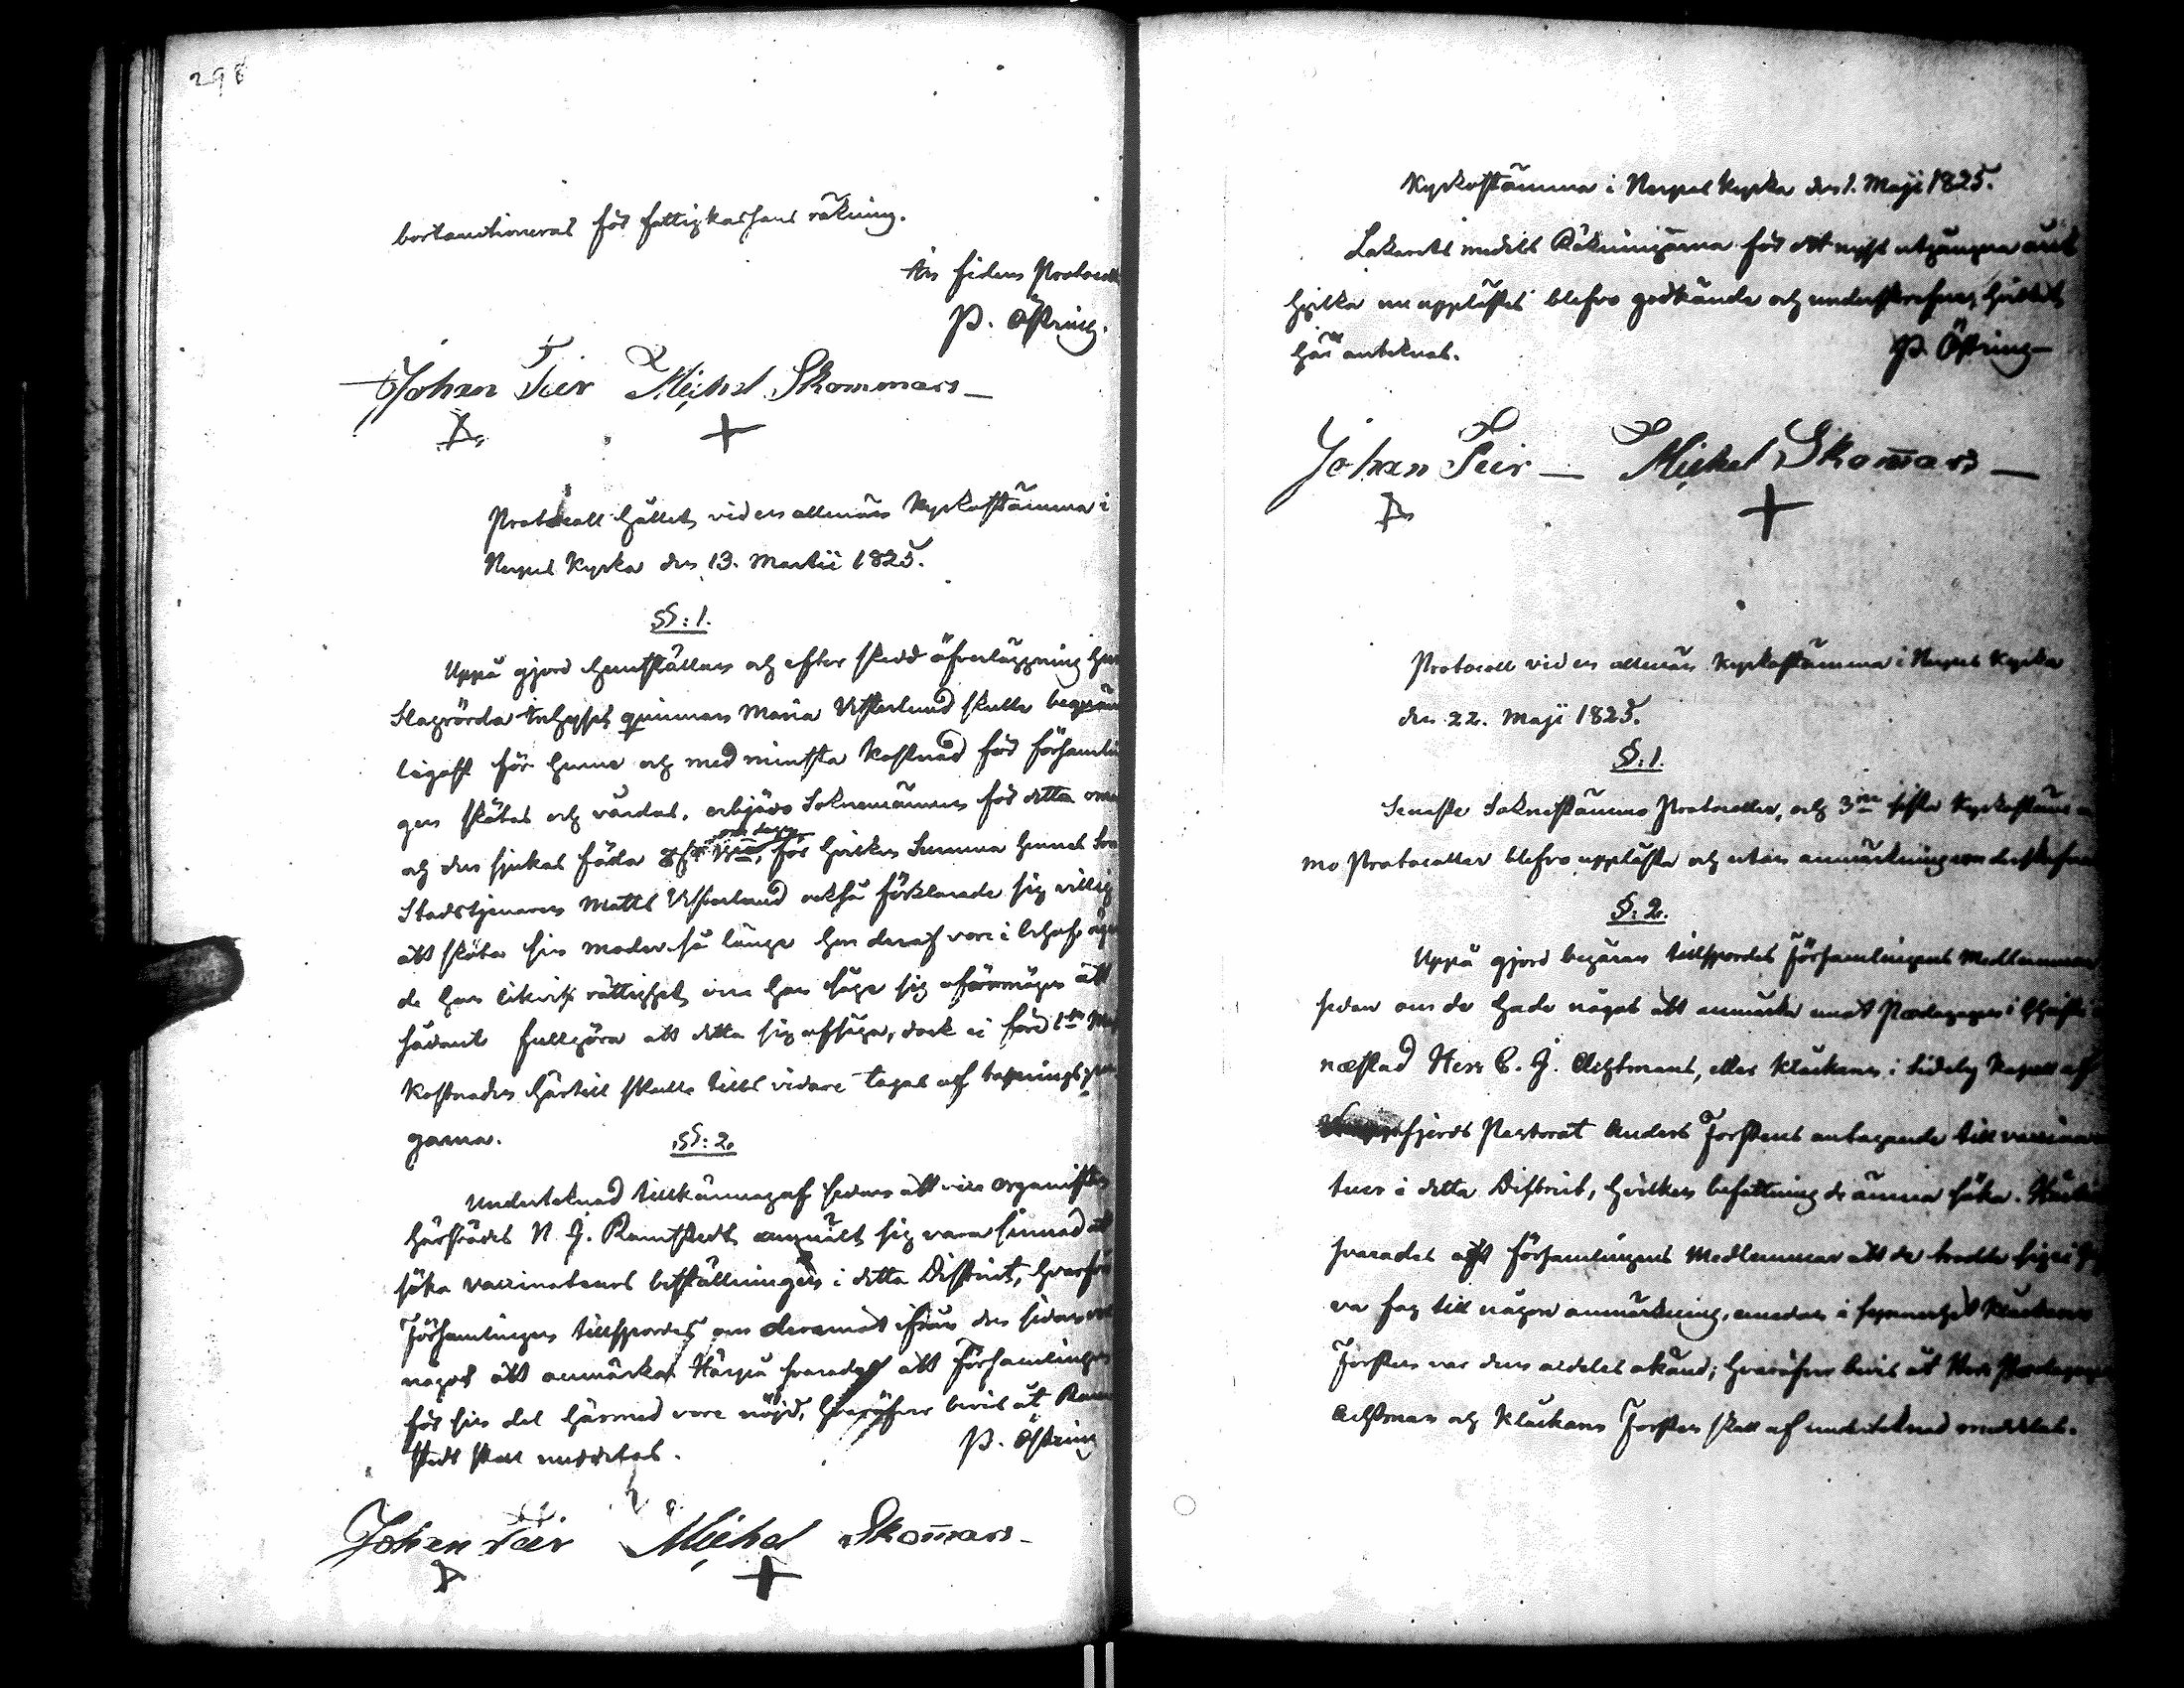 298
bortauctioneras för fattigkassans räkning.
In fidem Protocolli
P. Östring.
Johan Teir Michel Skommars
Protocoll hållet vid en allmän Kyrkostämma i
Nerpes Kyrka den 13. Martii 1825.
§: 1.
Uppå gjord hemställan och efter skedd öfverläggning huru
Slagrörda Inhyses qvinnan Maria Westerlund skulle beqväm
ligast för henne och med minsta kostnad för Församlin
gen skötas och vårdas, erbjöds Socknemännen för detta om
och den sjukas föda för hvilken Summa hennes Son
Stadstjenaren Matts Westerlund också förklarade sig villig
att sköta sin moder så länge hon deraf vore i behof, äga
de han likväl rättighet, om han såge sig oförmögen att
sådant fullgöra att detta sig afsäga, dock ei före 1sta Maji
Kostnaden härtill skulle tills vidare tagas af
garna.
§: 2.
Undertecknad tillkännagaf sedan att organisten
härstädes N. J. Ramstedt anmält sig vara sinnad att
söka vaccinateurs beställningen i detta District, hvarföre
Församlingen tillspordes om deremot ifrån den sidan vore
något att anmärka. Härpå svarades att Församlingen
för sin del härmed vore nöjd, hvaröfver bevis åt Ram
stedt skall meddelas.
P. Östring
Johan Teir Michel Skom̄ars
Kyrkostämma i Nerpes Kyrka den 1. Maji 1825.
Lazarets medels Räkningarna för det nyss utgångna året
hvilka nu upplästes blefvo godkända och underskrefne, hvilket
här antecknas.
P. Östring
Johan Teir Michel Skom̄ars
Protocoll vid en allmän Kyrkostämma i Nerpes Kyrka
den 22. Maji 1825.
§: 1.
Seneste Socknestämmo Protocoller, och 3ne sista Kyrkostäm
mo Protocoller blefvo upplästa och utan anmärkning underskrefne
§: 2.
Uppå gjord begäran tillspordes Församlingens Medlemmar
sedan om de hade något att anmärka emot Pædagogen i Christi
næstad Herr C. G. Achtmans, eller Klockaren i Sideby Kapell af
fjerds Pastorat Anders Forstens antagande till vaccina
teur i detta District, hvilken befattning de ämna söka. Härtill
svarades af Församlingens Medlemmar att de trodde sig ei h
va fog till någon anmärkning, emedan i synnerhet Klockaren
Forsten var dem aldeles okänd; hvaröfver bevis åt Herr Pædagogen
Achtman och Klockaren Forsten skall af undertecknad meddelas.